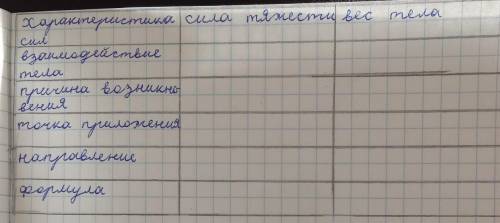 Характеристика сила тяжести вес тела
сил
взаимодействие
тела
причина возникно
вения
точка приложения
направление
формула